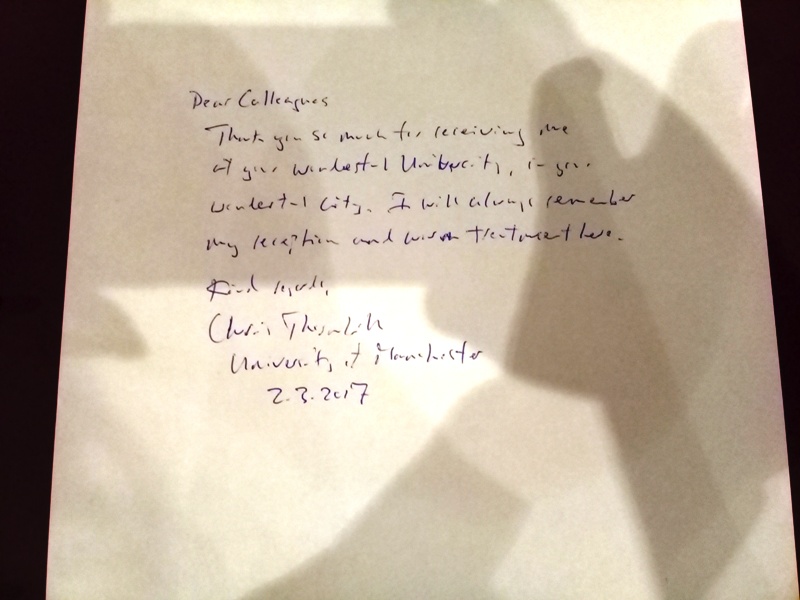 Dear Colleagues
Thank you so much for receiving me
at your wonderful University, in your
wonderful city. I will always remember
my reception and warm treatment here.
Kind regards,
Chris
University of Manchester
2.3.2017